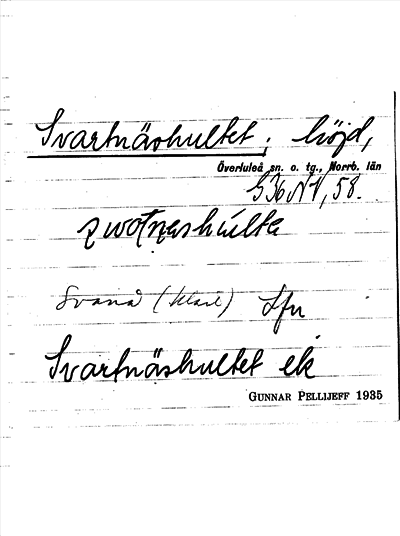 Svartnäshultet; höjd,
Överluleå sn. o. tg., Norrb. län
S36NV, 58.
Svanå (klart) Lfn
Svartnäshultet ek
GUNNAR PELLIJEFF 1935